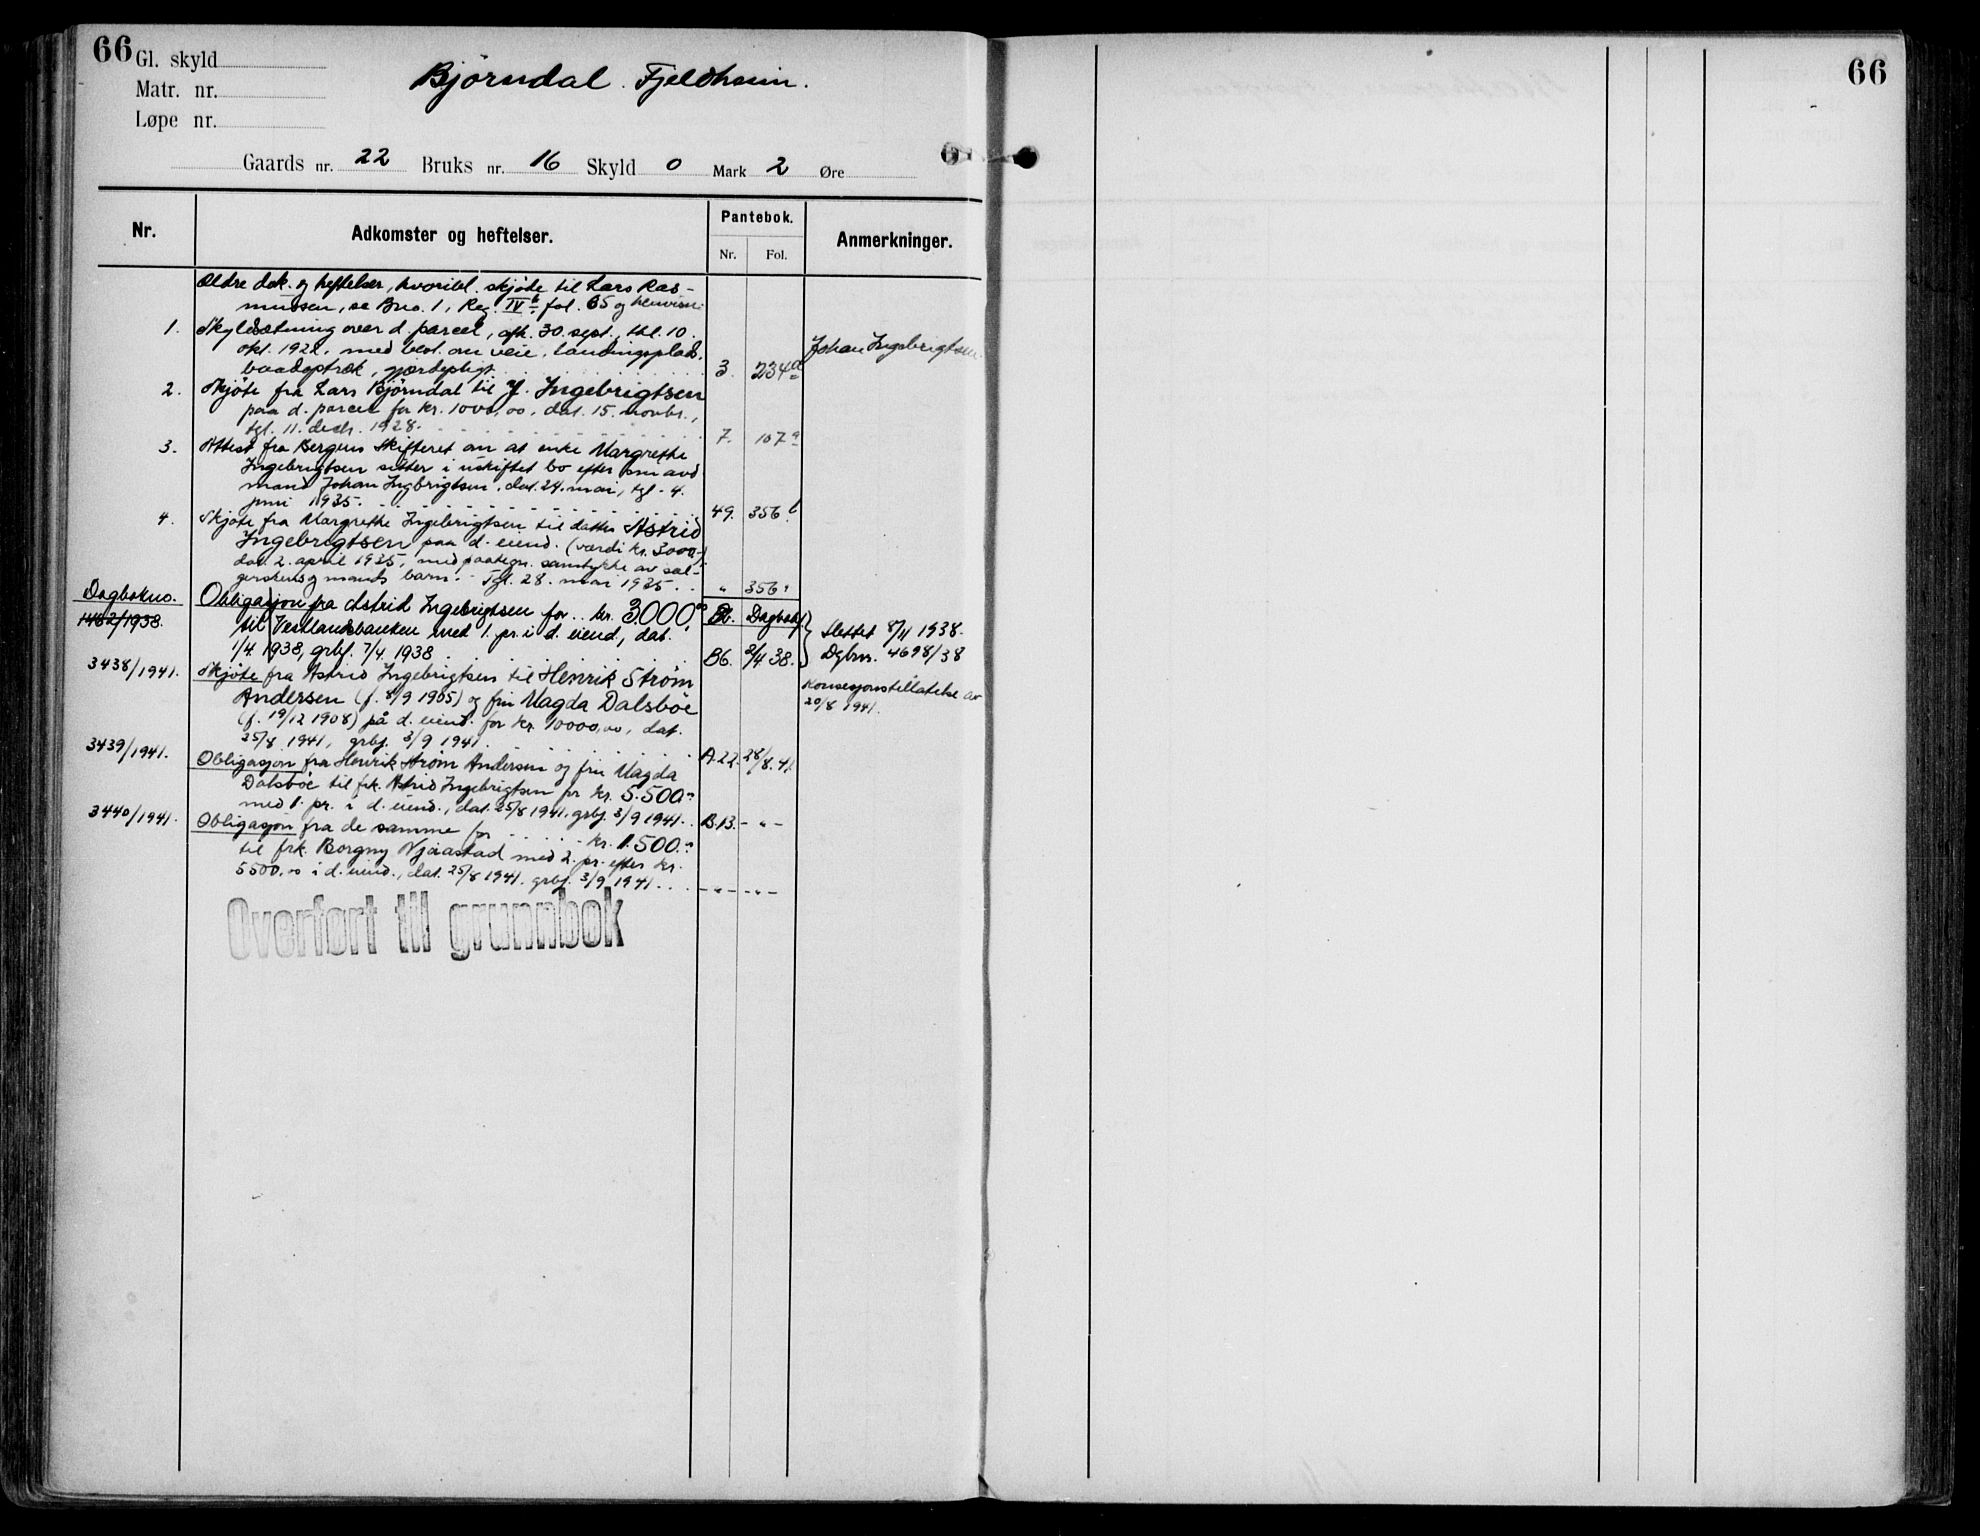 66
Gl. skyld
Matr. nr.
Løpe nr.
Bjørndal. Fjeldheim.
Gaards nr. 22 Bruks nr. 16 Skyld 0 Mark 2 Øre
Nr.
Adkomster og heftelser.
Pantebok.
Nr. Fol.
Anmerkninger.
Ældre dok. og heftelser, hvoribl. skjøte til Lars Ras-
mussen, se Bno. 1, Reg. IV b. fol. 65 og henvisn.
1. Skyldsætning over d. parcel, afh. 30. sept., thl. 10.
okt. 1922, med best. om veie, landingsplads,
baadoptræk, gjærdepligt. 3. 234a Johan Ingebrigtsen.
2. Skjøte fra Lars Bjørndal til J. Ingebrigtsen
paa d. parcel for kr. 1000,00, dat. 15. novbr.,
tgl. 11. decb. 1928. 7. 107a
3. Attest fra Bergens Skifteret om at enke Margrethe
Ingebrigtsen sitter i uskiftet bo efter sin avd.
mand Johan Ingbrigtsen, dat. 24. mai, tgl. 4.
juni 1935. 49. 356 b
4. Skjøte fra Margrethe Ingebrigtsen til datter Astrid
Ingebrigtsen paa d. eiend. (værdi kr. 3000,-)
dat. 2. april 1935, med paategn. samtykke av sæl-
gerskens og mands barn. Tgl. 28. mai 1935. " 356
Dagbokno. Obligasjon fra Astrid Ingebrigtsen for kr. 3000.00 Dagbokf.
1462/1938. til Vestlandsbanken med 1. pr. i d. eiend, dat. Slettet 8/11 1938.
1/4. 1938, grbf. 7/4. 1938. B6. 2/4 38. Dgbnr. 4698/38
3438/1941. Skjøte fra Astrid Ingebrigtsen til Henrik Strøm
Andersen (f. 8/9 1905) og fru Magda Dalsbøe Konsesjonstillatelse av
(f. 19/12 1908) på d. eiend. for kr. 10000,00, dat. 20/8 1941.
25/8 1941, grbf. 3/9 1941. A.22. 28/8.41.
3439/1941. Obligasjon fra Henrik Strøm Andersen og fru Magda
Dalsbøe til frk. Astrid Ingebrigtsen for kr. 5.500.
med 1. pr. i d. eiend., dat. 25/8 1941. grbf. 3/9 1941. B.13. - " -
3440/1941. Obligasjon fra de samme for kr. 1.500.
til frk. Borgny Njaastad med 2. pr. efter kr.
5500,00 i d. eiend., dat. 25/8 1941. grbf. 3/9 1941. - " - - " -
Overført til grunnbok
66